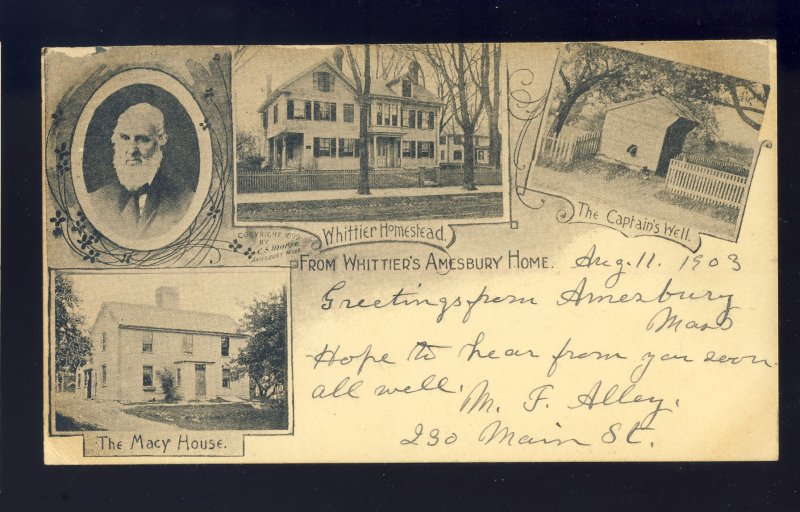 Whittier Homestead.
The Captain's Well.
COPYRIGHT 18
BY
C.S. Morse
AMESBURY MASS.
FROM WHITTIER'S AMESBURY HOME.
Aug. 11. 1903
Greetings from Amesbury
Mass
Hope to hear from you soon.
all well.
M. F. Alley.
230 Main St.
The Macy House.